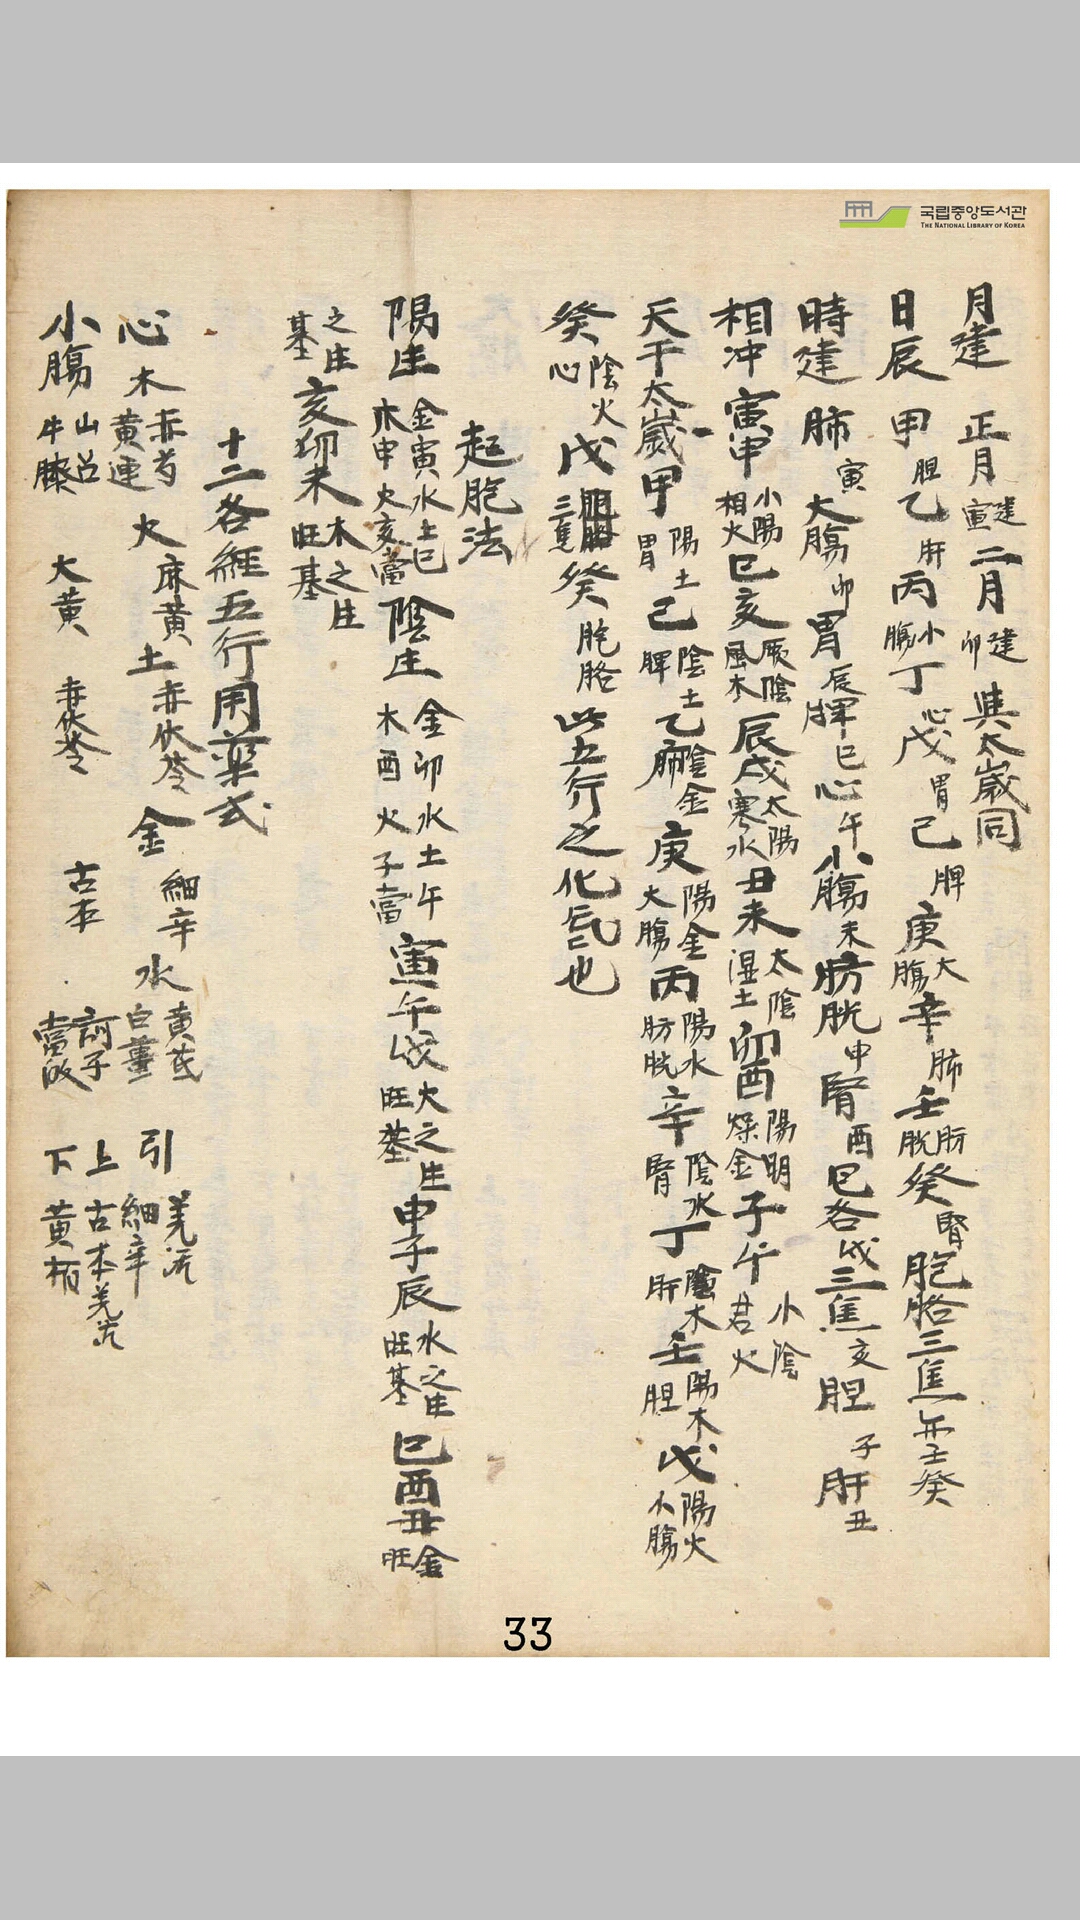 국립중앙도서관
THE NATIONAL LIBRARY OF KOREA
月建 正月建寅 二月建卯 與太歲同
日辰 甲胆乙肝丙小膓丁心戊胃己脾庚大膓辛肺壬肪胱癸腎胞胳三焦亦壬癸
時建 肺寅大膓卯胃辰脾巳心午小膓未肪胱申腎酉包各戌三焦亥胆子肝丑
相冲 寅申小陽相火巳亥厥陰風木辰戌太陽寒水丑未太陰湿土卯酉陽明燥金子午小陰君火
天干太歲甲陽土胃己陰土脾乙陰金肺庚陽金大膓丙陽水肪胱辛陰水腎丁陰木肝壬陽木胆戊陽火小膓
癸陰火心戊三焦癸胞胳此五行之化氣也
起胞法
陽生金寅水土巳木申火亥當陰生金卯水土午木酉火子當寅午戌火之生旺基申子辰水之生旺基巳酉丑金旺
之生基亥卯未木之生旺基
十二各經五行用藥式
心木赤芍黃連火麻黃土赤伏苓金細辛水黃芪白薑引羌活細辛
小膓山芍牛膝 大黃 赤伏苓 古本 訶子當皈 上古本羌活下黃栢
33